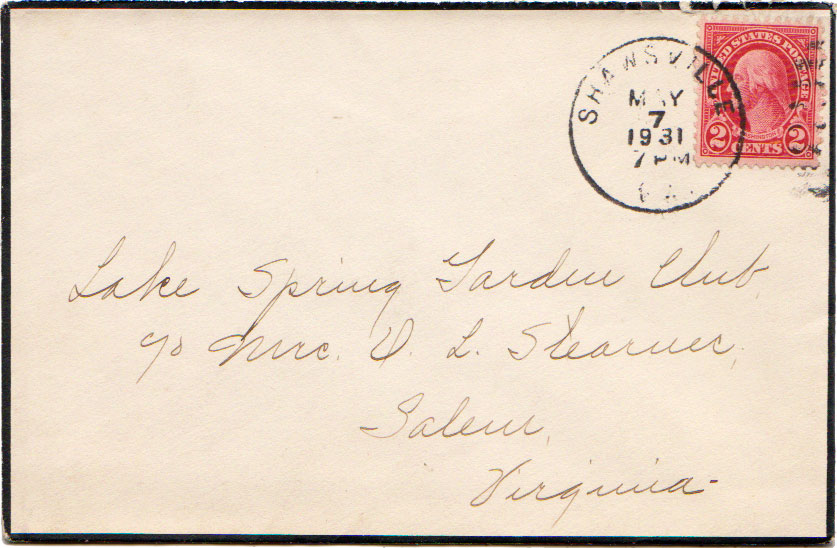 SHAWSVILLE
MAY
7
1931
7 PM
VA.
UNITED STATES POSTAGE
WASHINGTON
2 CENTS 2
Lake Spring Garden Club,
c/o Mrs. O. L. Stearnes,
Salem,
Virginia.